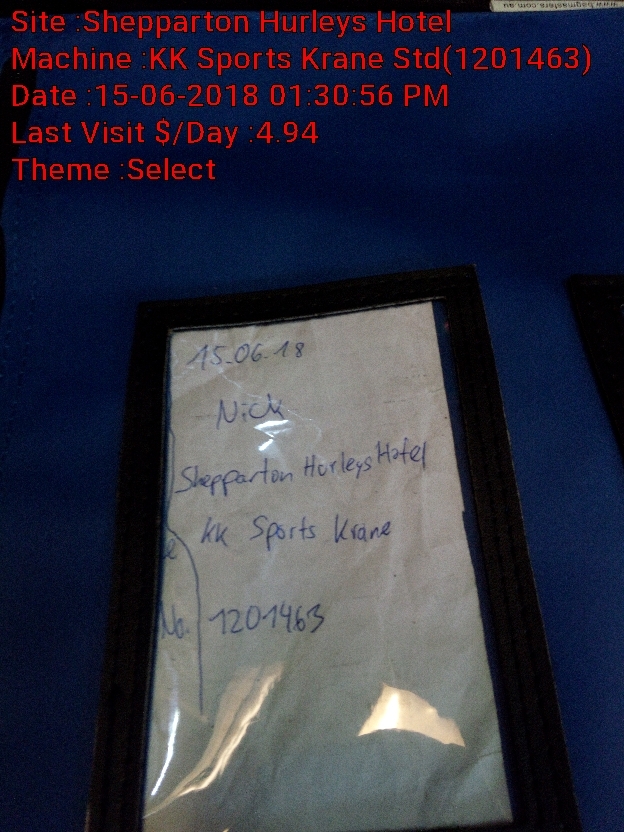 www.bagmasters.com.au
Site :Shepparton Hurleys Hotel
Machine :KK Sports Krane Std(1201463)
Date :15-06-2018 01:30:56 PM
Last Visit $/Day :4.94
Theme :Select
15.06.18
Nick
Shepparton Hurleys Hotel
e KK Sports Krane
No. 1201463